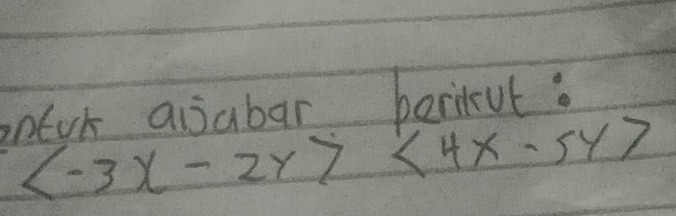 entuk aijabar berikut :
<-3x - 2y> <4x - 5y>